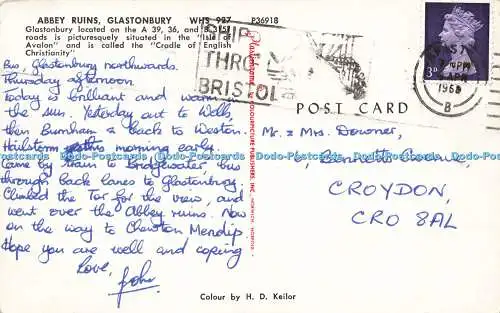 ABBEY RUINS, GLASTONBURY WHS 927 P36918
Glastonbury located on the A 39, 36, and B 3151
roads is picturesquely situated in the "Isle of
Avalon" and is called the "Cradle of English
Christianity"
SHIP
THRO'
BRISTOL
3D
APR
1968
B
POST CARD
Bus, Glastonbury northwards.
Thursday afternoon
Today is brilliant and warm in
the sun. Yesterday out to Wells,
then Burnham & back to Weston.
Hailstorm this morning early.
Came by train to Bridgwater, bus
through back lanes to Glastonbury.
Climbed the Tor for the view, and
went over the Abbey ruins. Now
on the way to Chewton Mendip.
Hope you are well and coping
Love, John
Mr & Mrs Downer,
CROYDON,
CRO 8AL
Colour by H. D. Keilor
Dodo-Postcards Dodo-Postcards Dodo-Postcards Dodo-Postcards